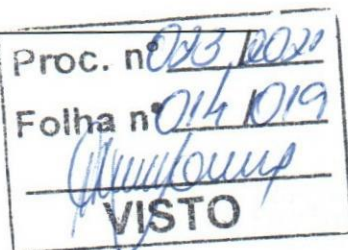 Proc. nº 023 /2021
Folha nº 014 / 019
VISTO